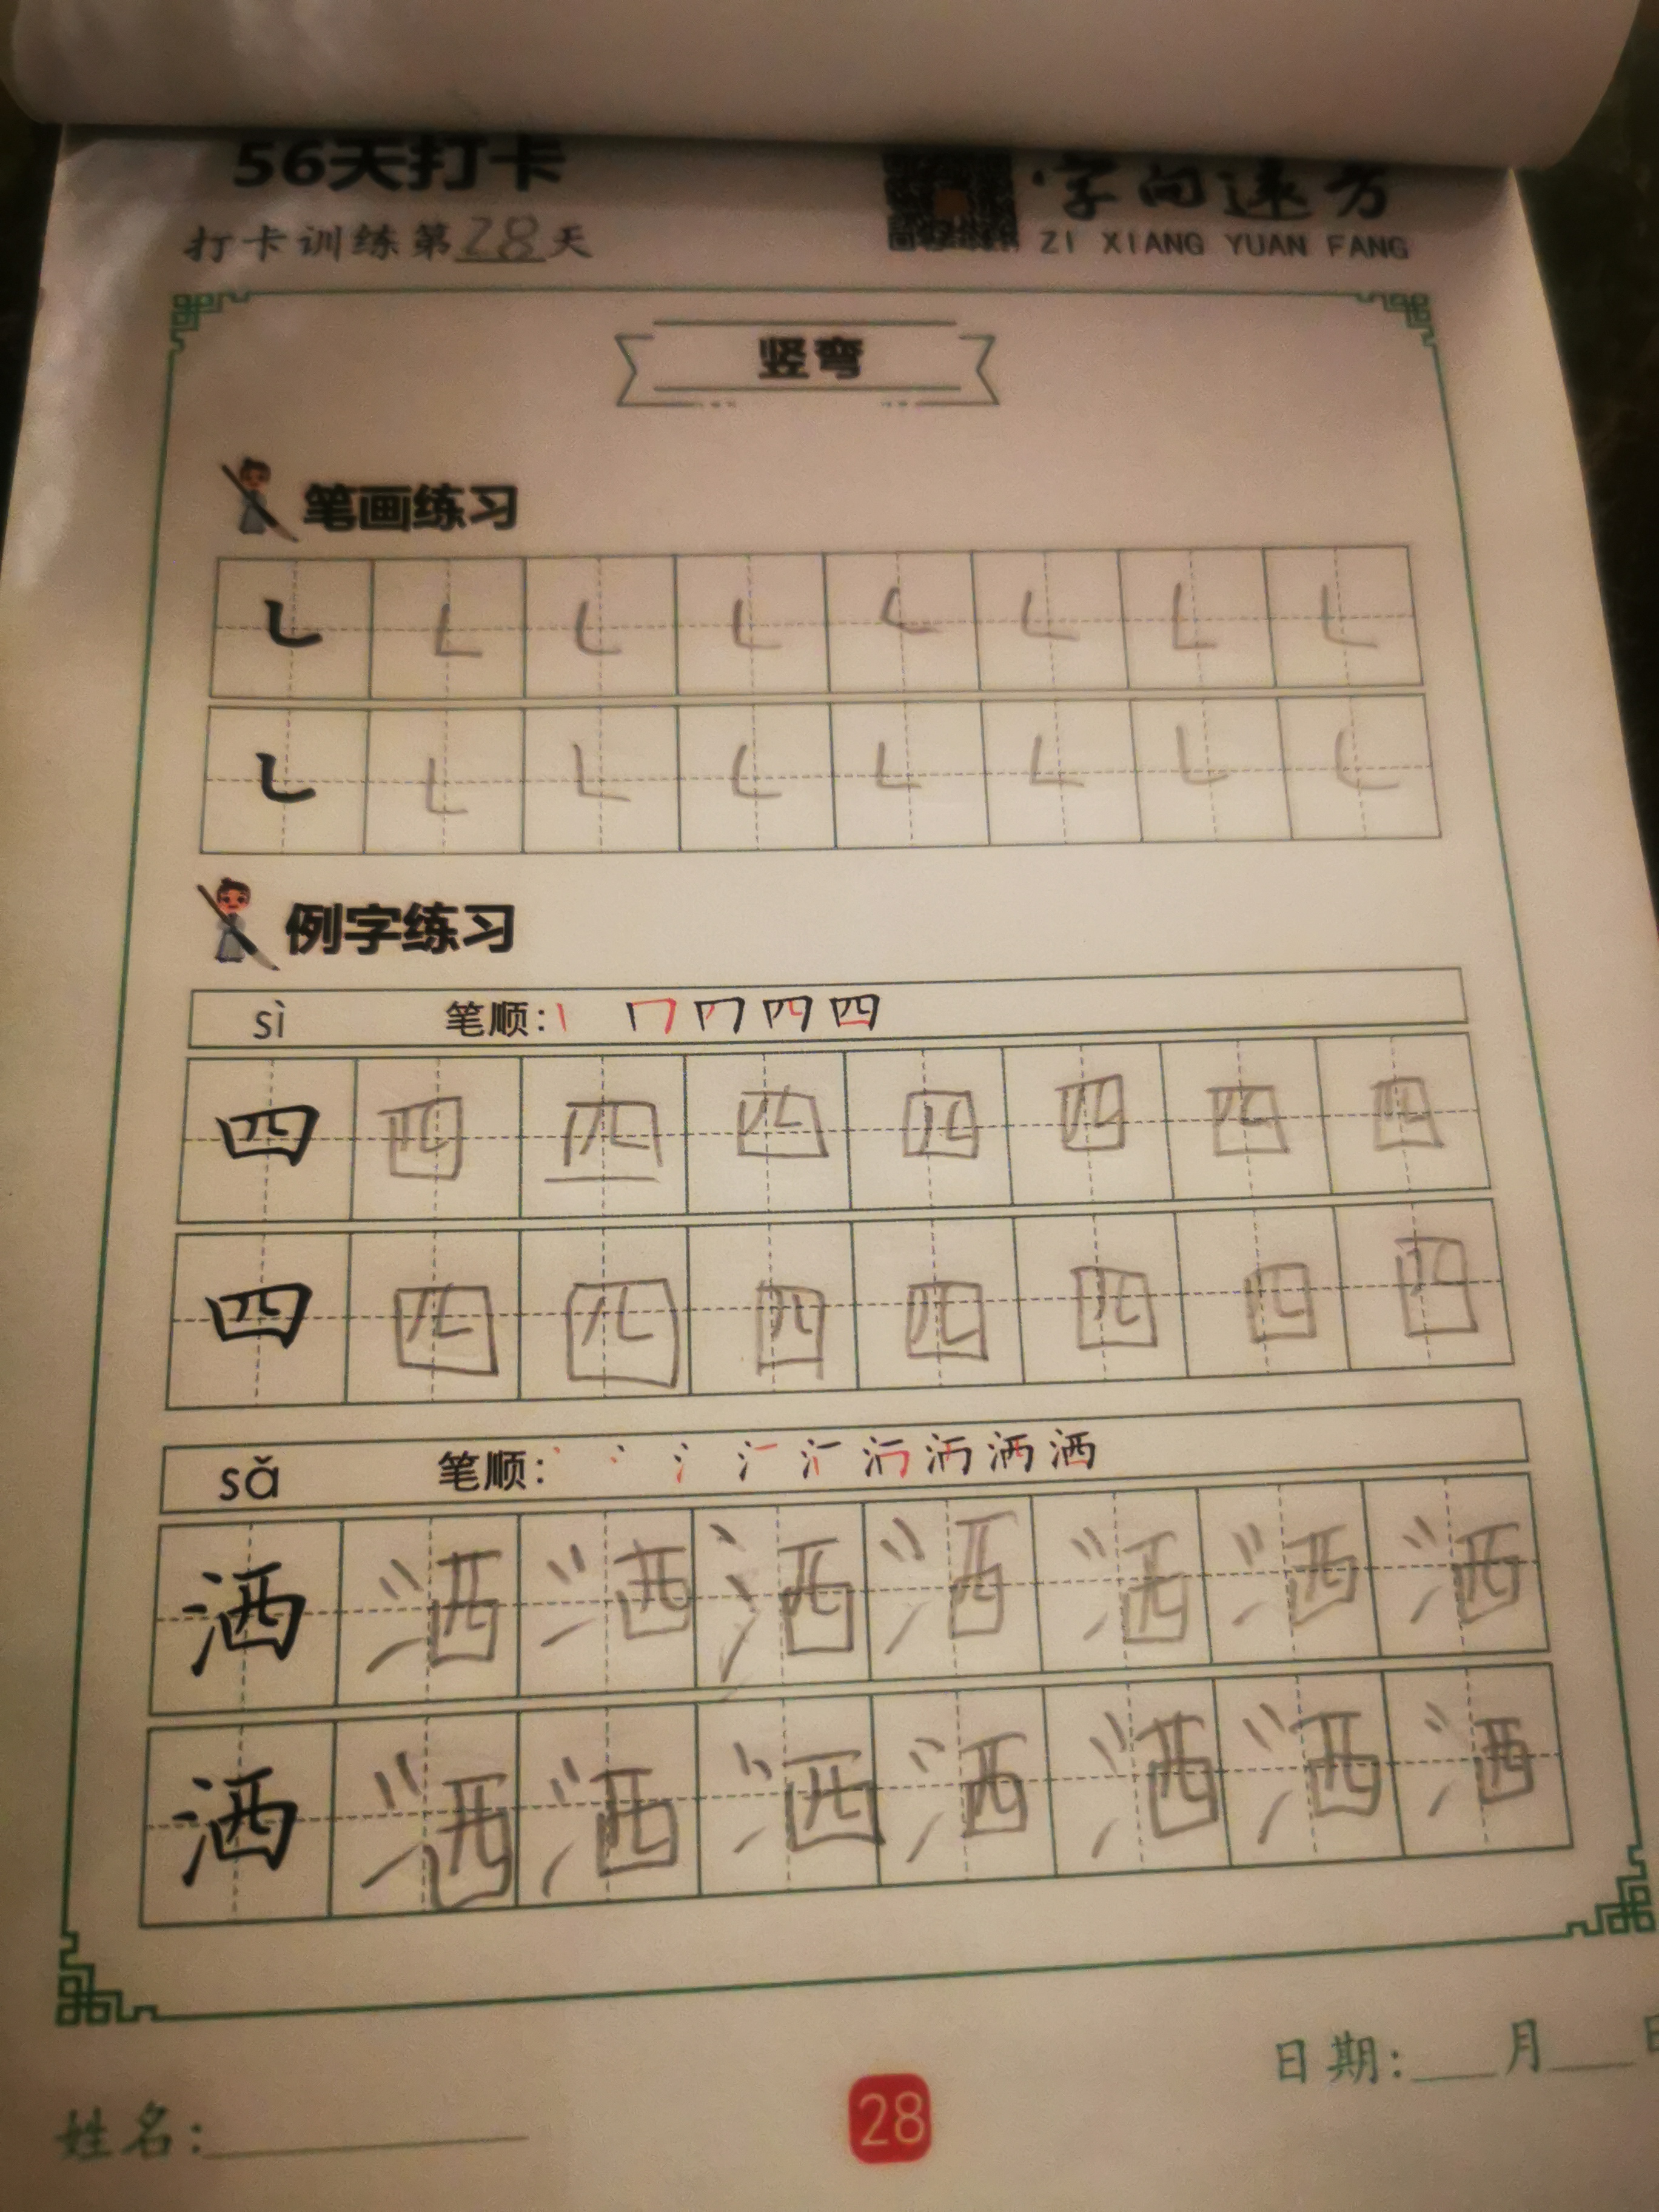 56天打卡
打卡训练第28天
字向远方
ZI XIANG YUAN FANG
竖弯
笔画练习
例字练习
sì 笔顺:
四 四 四 四 四 四 四 四
四 四 四 四 四 四 四 四
sǎ 笔顺:
洒 洒 洒 洒 洒 洒 洒 洒
洒 洒 洒 洒 洒 洒 洒 洒
日期:___月___日
姓名:
28